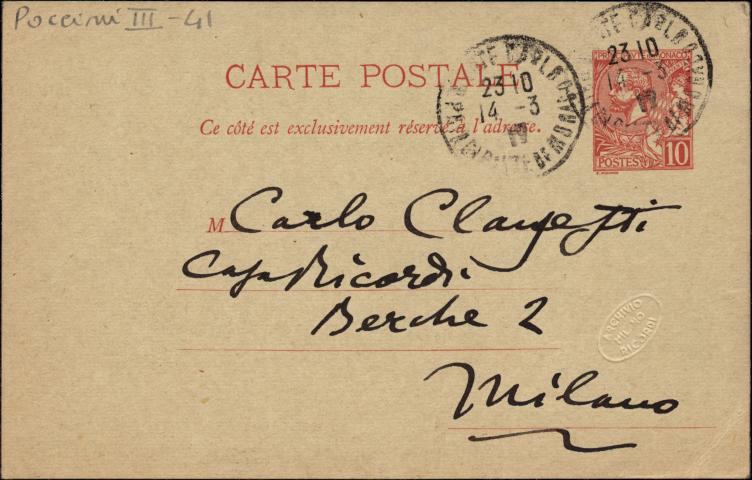 Puccini III - 41
CARTE POSTALE
Ce côté est exclusivement réservé à l'adresse.
23 10
14 -3
17
23 10
14 -3
17
POSTES 10
M Carlo Clausetti
Casa Ricordi
Berche 2
Milano
ARCHIVIO
RICORDI